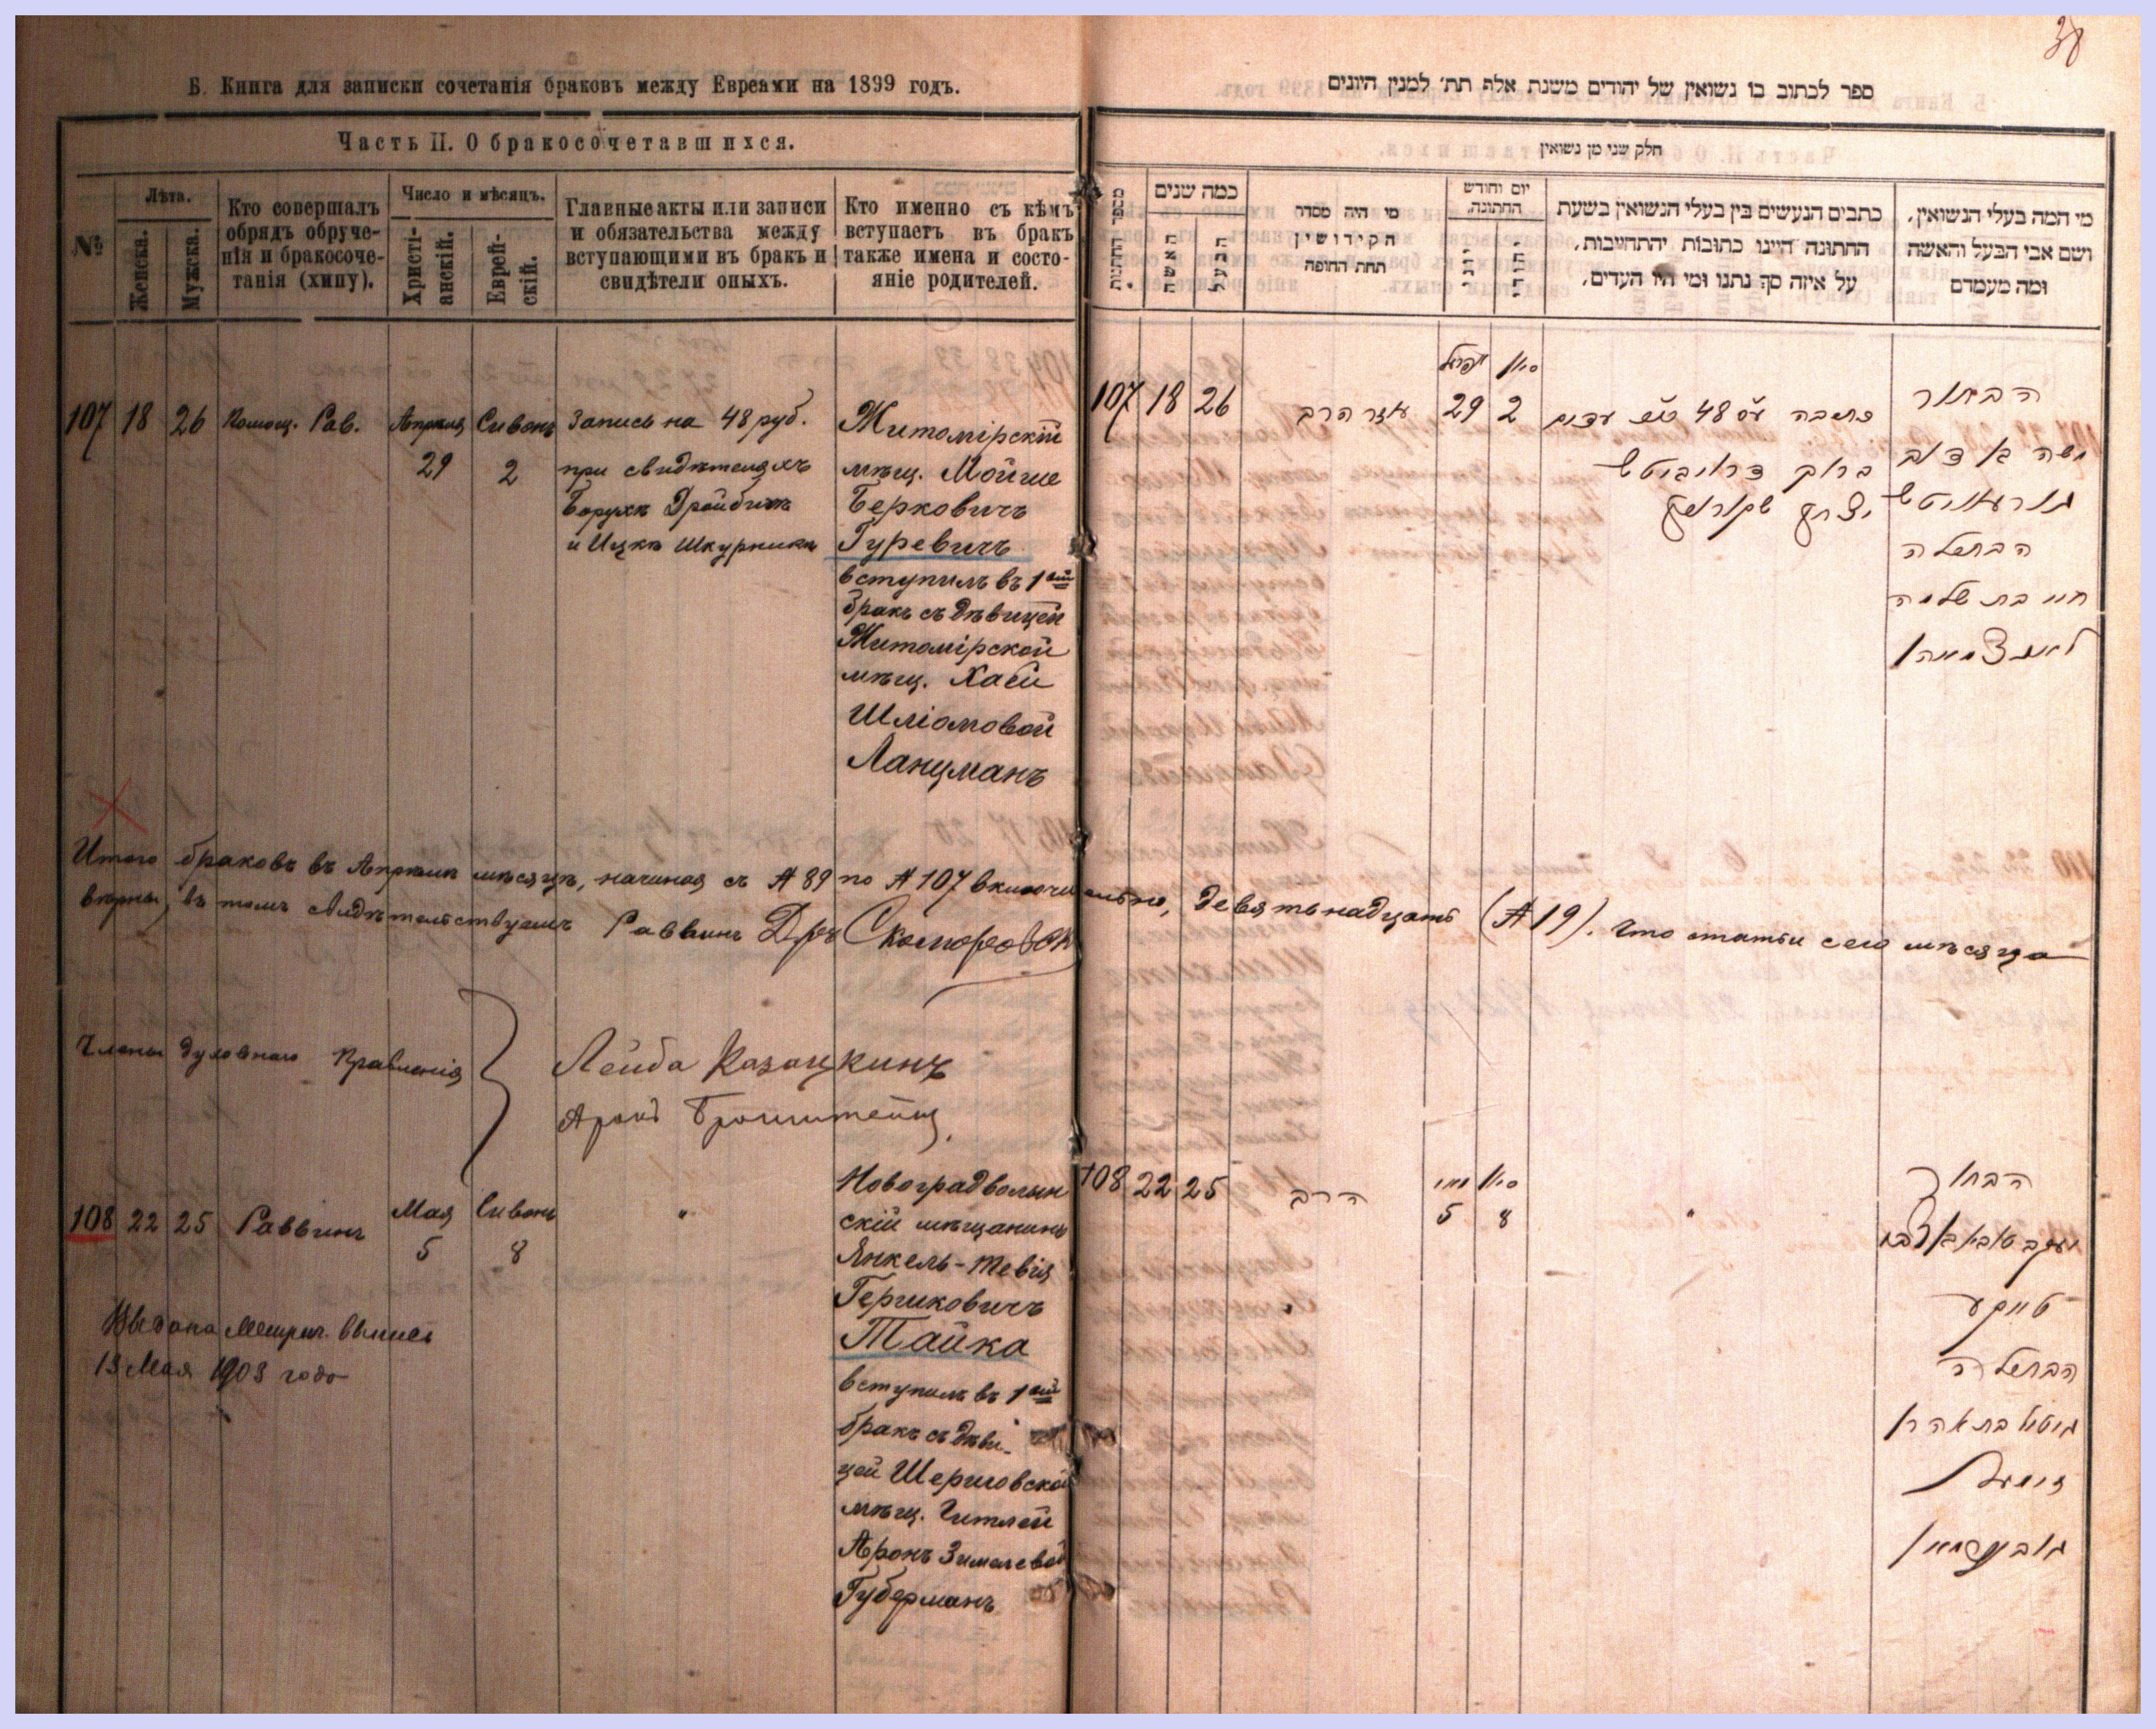 38
Б. Книга для записки сочетанія браковъ между Евреами на 1899 годъ.
Часть II. О бракосочетавшихся.
№
Лѣта.
Женска.
Мужска.
Кто совершалъ
обрядъ обруче-
нія и бракосоче-
танія (хипу).
Число и мѣсяцъ.
Христі-
анскій.
Еврей-
скій.
Главные акты или записи
и обязательства между
вступающими въ бракъ и
свидѣтели оныхъ.
Кто именно съ кѣмъ
вступаетъ въ бракъ
также имена и состо-
яніе родителей.
107 18 26 Помощ. Рав. Апрѣля Сивонъ Запись на 48 руб. Житомірскій
29 2 при свидѣтеляхъ мѣщ. Мойше
Борухѣ Дройбичѣ Берковичъ
и Ицкѣ Шкурникѣ Гуревичъ
вступилъ въ 1ый
бракъ съ дѣвицей
Житомірской
мѣщ. Хаей
Шліомовой
Ланцманъ
Итого браковъ въ Апрѣлѣ мѣсяцѣ, начиная съ № 89 по № 107 включительно, девятьнадцать (№ 19). Что статьи сего мѣсяца
вѣрны, въ томъ свидѣтельствуемъ Раввинъ Д-ръ Скоморовскій
Члены Духовнаго Правленія
Лейба Казацкинъ
Аронъ Бронштейнъ
108 22 25 Раввинъ Мая Сивонъ " Новоградволын
5 8 скій мѣщанинъ
Янкель-Тевія
Гершковичъ
Тайка
вступилъ въ 1ый
бракъ съ дѣви-
цей Шериговской
мѣщ. Гитлей
Аронъ Зимелевой
Губерманъ
Выдана Метрич. выпись
13 Мая 1903 года
ספר לכתוב בו נשואין של יהודים משנת אלף תת׳ למנין היונים
חלק שני מן נשואין
מספר החתנות
כמה שנים
האשה
הבעל
מי היה מסדר
הקידושין
תחת החופה
יום וחודש
החתונה
יוני
יהודי
כתבים הנעשים בין בעלי הנשואין בשעת
החתונה היינו כתובות והתחייבות,
על איזה סך נתנו ומי היו העדים,
מי המה בעלי הנשואין,
ושם אבי הבעל והאשה
ומה מעמדם
אפריל סיון
107 18 26 עוזר הרב 29 2 כתובה 48 עדים הבחור
משה
ברוך דרויביטש גורעוויטש
יצחק שקורניק
הבתולה
חיי בת שלמה
לאנצמאן
108 22 25 הרב מאי סיון הבחור
5 8 "
יעקב טביא
טייקע
הבתולה
גיטל בת אהרן
זימעל
גוברמאן